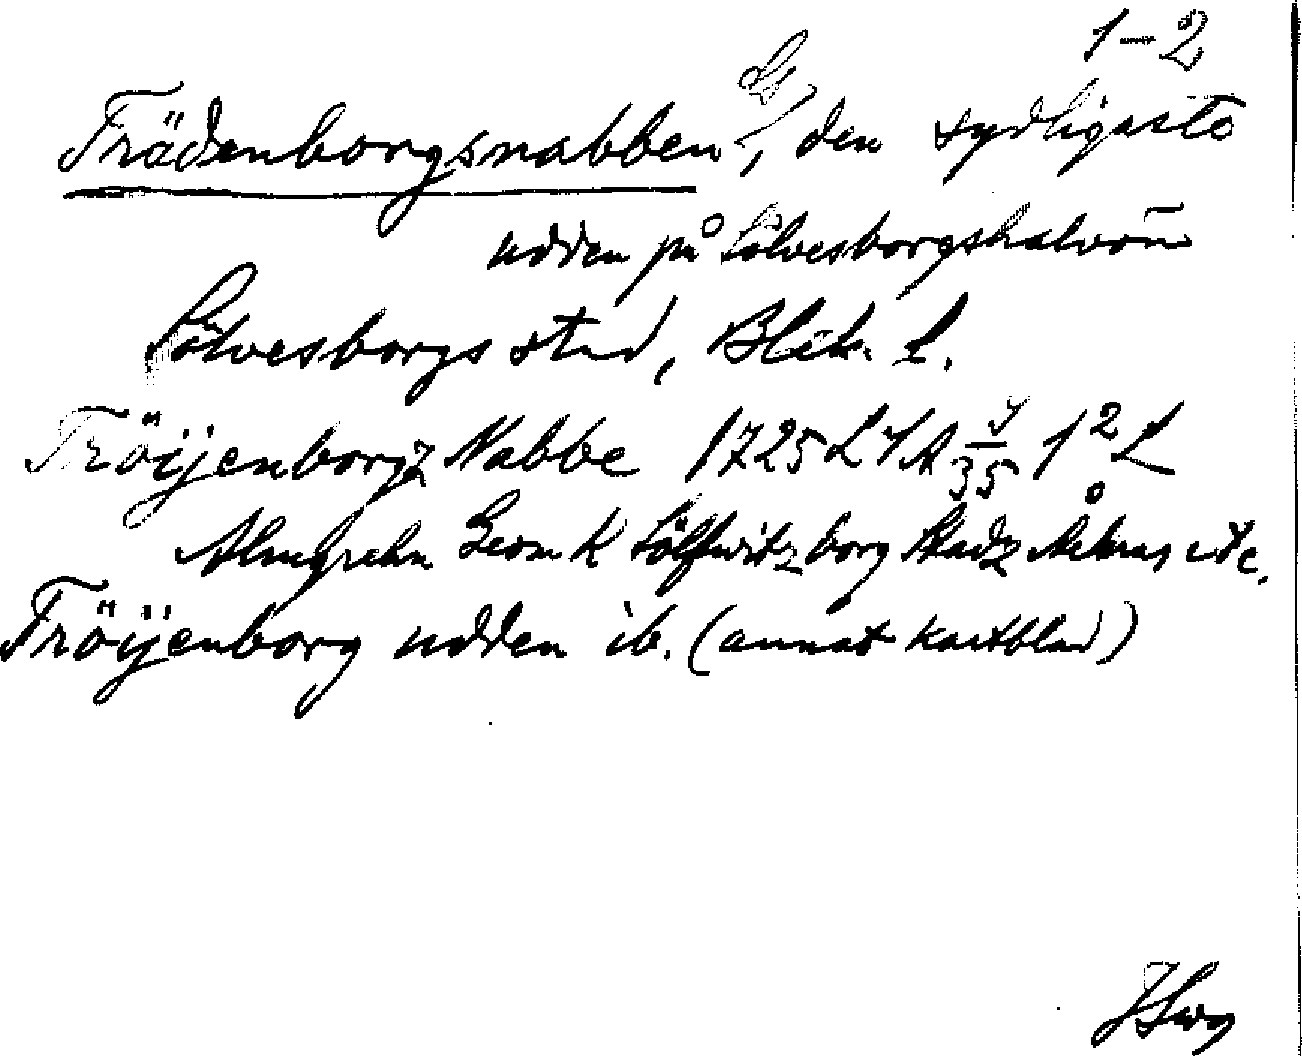 1-2
Frädenborgsnabben, den sydligaste
udden på Sölvesborgshalvön
Sölvesborgs stad, Blek. L.
Fröijenborgz Nabbe 1725 LSA 1² L
Almgrehn Geom K Sölfwitzborg Stadz Åkrar etc.
Fröijenborg udden ib. (annat kartblad)